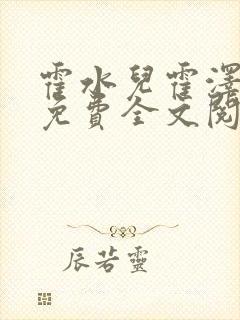 霍水兒霍澤
免費全文閱
辰若靈